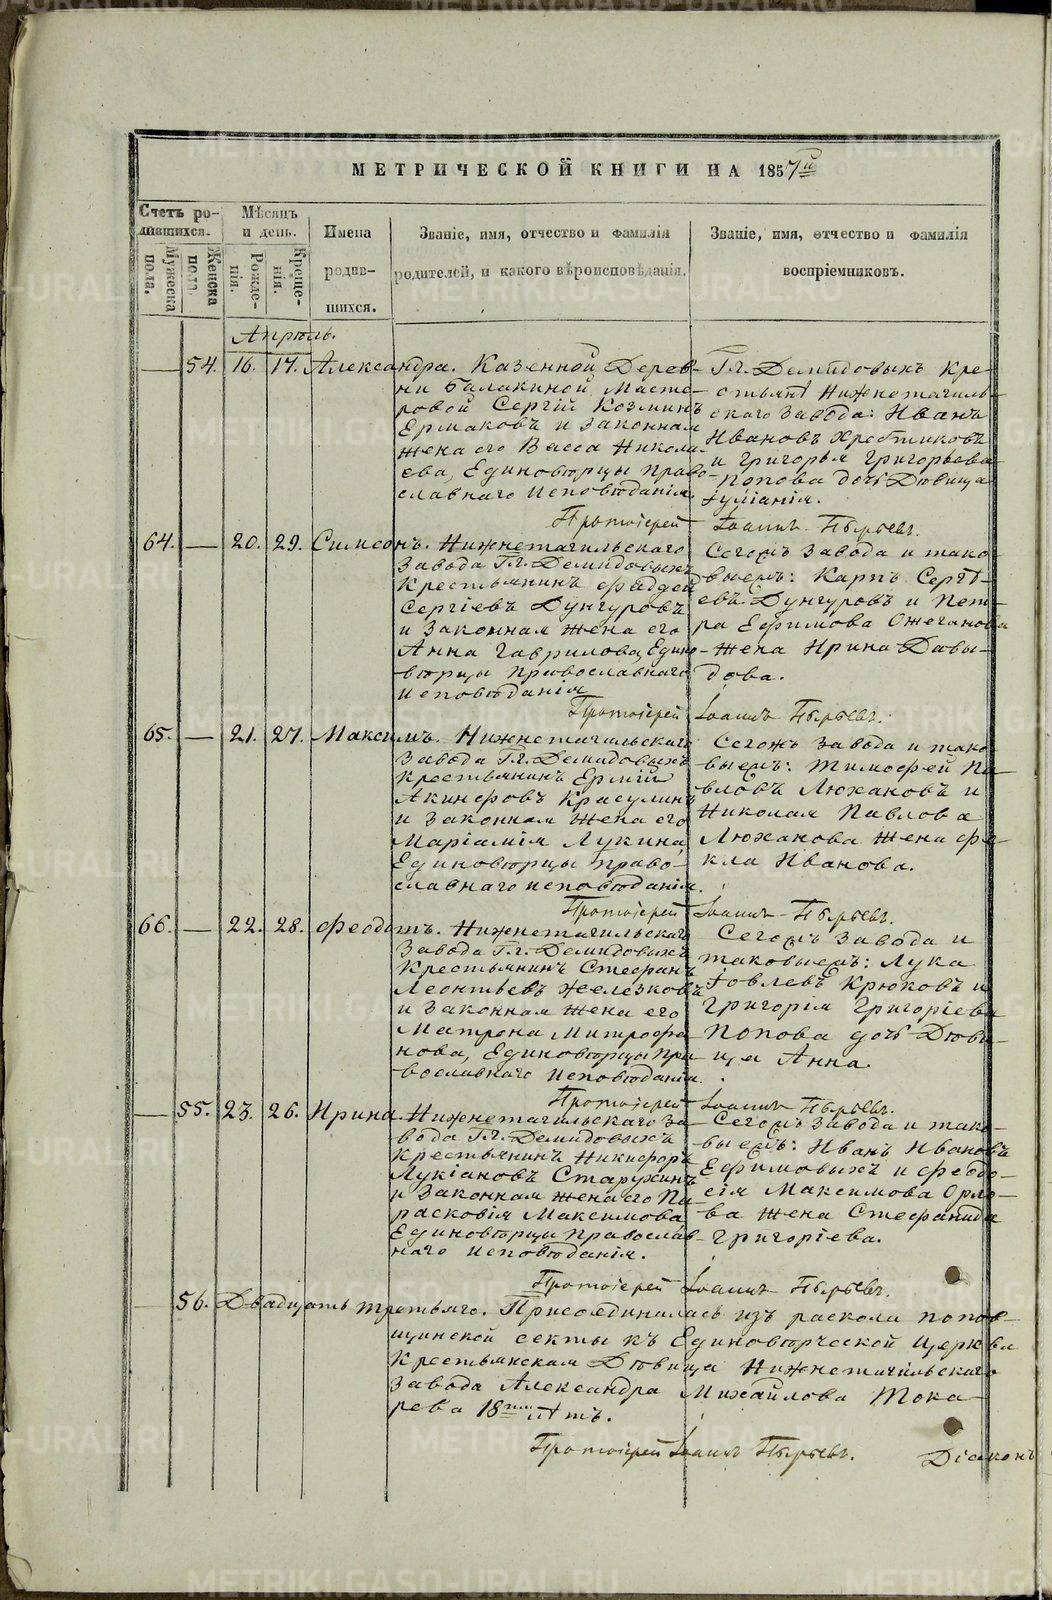 МЕТРИЧЕСКОЙ КНИГИ НА 1857й
Счетъ ро-
дившихся.
Мѣсяцъ
и день.
Имена
родив-
шихся.
Званіе, имя, отчество и фамилія
родителей, и какого вѣроисповѣданія.
Званіе, имя, отчество и фамилія
воспріемниковъ.
Мужеска
пола.
Женска
пола.
Рожде-
нія.
Креще-
нія.
Апрѣль.
54. 16. 17. Александра. Казенной Дерев-
ни Балакиной Масте-
ровой Сергій Козминъ
Ермаковъ и законная
жена его Васса Никола-
ева, Единовѣрцы право-
славнаго исповѣданія.
Гг. Демидовыхъ Кре-
стьянѣ Нижнетагиль-
скаго завода: Иванъ
Ивановъ
и Григорья Григорьева
Попова дочь Дѣвица
Іуліанія.
Протоіерей Іоаннъ Пырьевъ.
64. — 20. 29. Симеонъ. Нижнетагильскаго
завода Гг. Демидовыхъ
Крестьянинъ Фаддей
Сергіевъ Дунгуровъ
и законная жена его
Анна Гаврилова, Едино-
вѣрцы православнаго
исповѣданія
Сегожъ завода и тако-
выежъ: Карпъ Сергѣ-
евъ Дунгуровъ и Пет-
ра Ефимова Ожеганова
жена Ирина Давы-
дова.
Протоіерей Іоаннъ Пырьевъ.
65. — 21. 27. Максимъ. Нижнетагильскаго
завода Гг. Демидовыхъ
Крестьянинъ Ермій
Акинфовъ Красулинъ
и законная жена его
Маріамія Лукина,
Единовѣрцы право-
славнаго исповѣданія.
Сегожъ завода и тако-
выежъ: Тимофей Па-
вловъ Люхановъ и
Николая Павлова
Люханова жена Фе-
кла Иванова.
Протоіерей Іоаннъ Пырьевъ.
66. — 22. 28. Феодотъ. Нижнетагильскаго
завода Гг. Демидовыхъ
Крестьянинъ Стефанъ
Леонтьевъ Железковъ
и законная жена его
Матрона Митрофа-
нова, Единовѣрцы Пра-
вославнаго исповѣданія.
Сегожъ завода и
таковыежъ: Лука
Іовлевъ Крюковъ и
Григорія Григоріева
Попова дочь Дѣви-
ца Анна.
Протоіерей Іоаннъ Пырьевъ.
— 55. 23. 26. Ирина. Нижнетагильскаго за-
вода Гг. Демидовыхъ
Крестьянинъ Никифоръ
Лукіановъ Старухинъ
и законная жена его Па-
расковія Максимова
Единовѣрцы православ-
наго исповѣданія.
Сегожъ завода и тако-
выежъ: Иванъ Ивановъ
Ефимовыхъ и Феодо-
сія Максимова Орло-
ва жена Стефанида
Григоріева.
Протоіерей Іоаннъ Пырьевъ.
56. Двадцать третьяго. Присоединилась изъ раскола попов-
щинской секты къ Единовѣрческой церкви
Крестьянская Дѣвица Нижнетагильскаго
завода Александра Михайлова Тока-
рева 18ти лѣтъ.
Протоіерей Іоаннъ Пырьевъ. Діаконъ
METRIKI.GASO-URAL.RU